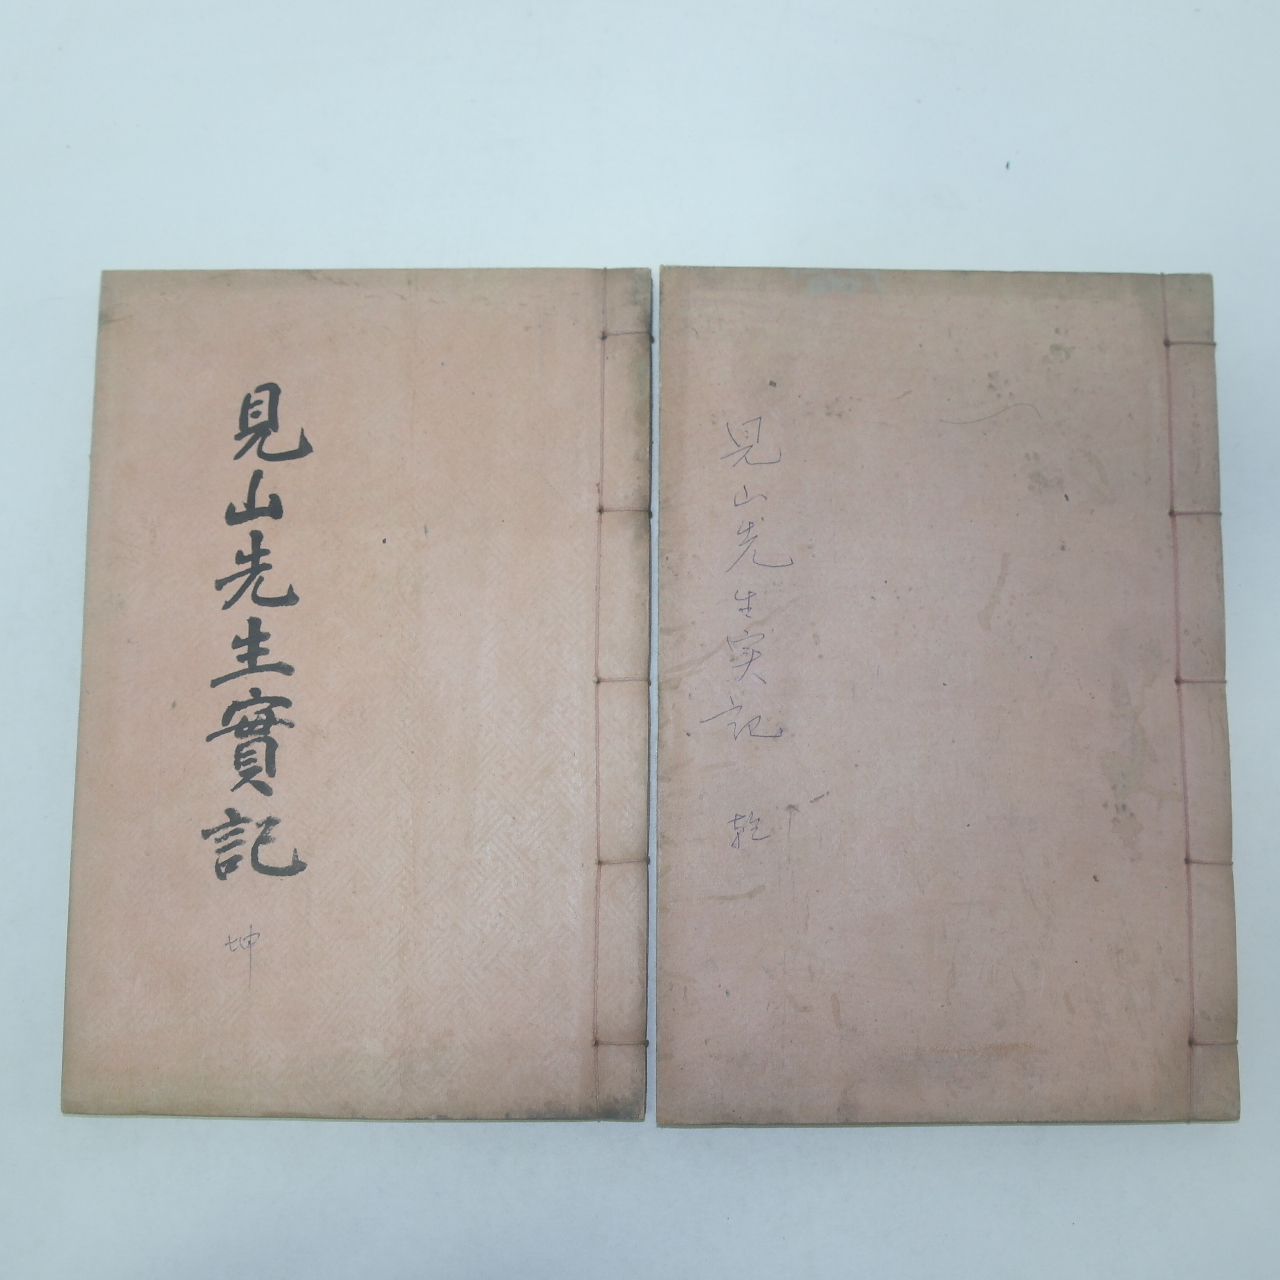 見山先生実記 乾
見山先生實記 坤